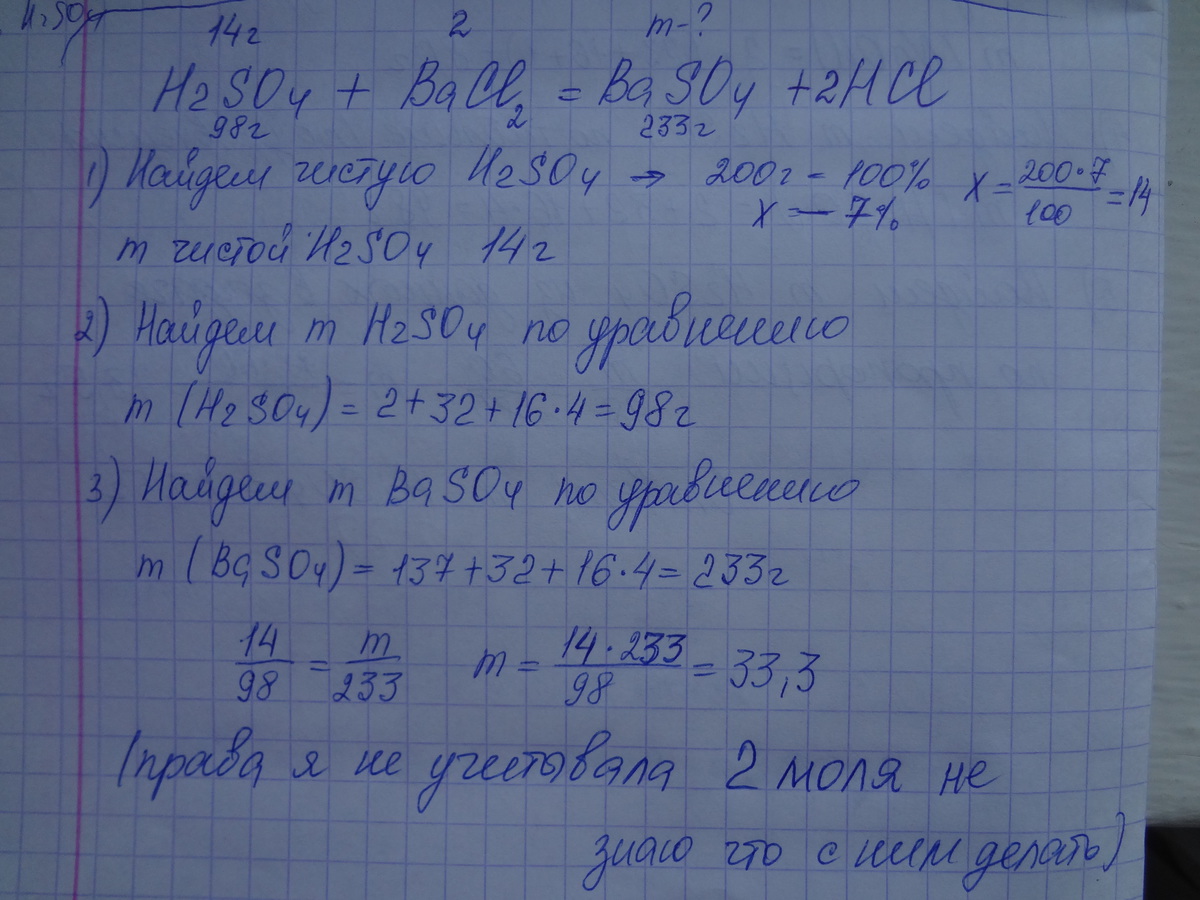 H₂SO₄
14г 2 m-?
H₂SO₄ + BaCl₂ = BaSO₄ + 2HCl
98г 233г
1) Найдем чистую H₂SO₄ → 200г - 100% X = 200·7/100 = 14
X — 7%
m чистой H₂SO₄ 14г
2) Найдем m H₂SO₄ по уравнению
m (H₂SO₄) = 2+32+16·4=98г
3) Найдем m BaSO₄ по уравнению
m (BaSO₄) = 137+32+16·4= 233г
14/98 = m/233 m = 14·233/98 = 33,3
(права я не учетывала 2 моля не
знаю что с ним делать)